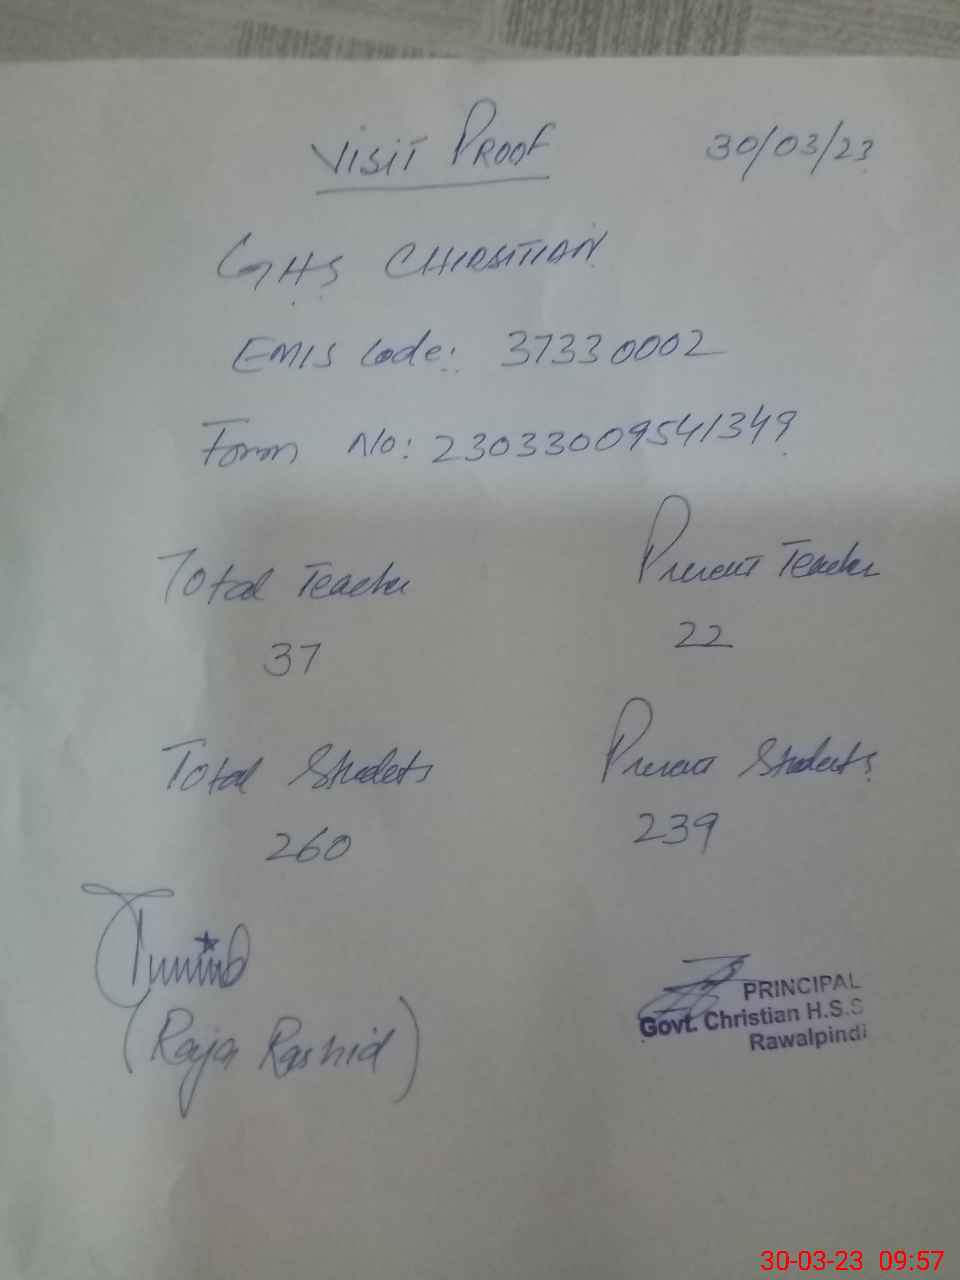 Visit Proof 30/03/23
GHS CHIRSITIAN
EMIS Code: 37330002
Form No: 23033009541349
Total Teacher Present Teacher
37 22
Total Students Present Students
260 239
(Raja Rashid)
PRINCIPAL
Govt. Christian H.S.S
Rawalpindi
30-03-23 09:57